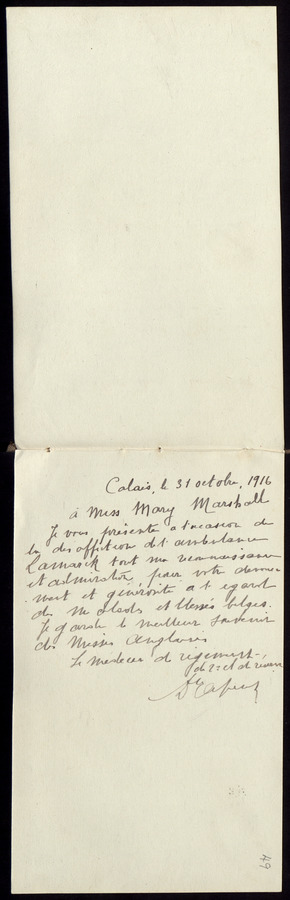 Calais, le 31 octobre, 1916
à Miss Mary Marshall
Je vous présente à l'occasion de
la disparition de l'ambulance
Lamarck tout ma reconnaissance
et admiration, pour votre dévoue-
ment et générosité à l'égard
des malades et blessés belges.
Je garde le meilleur souvenir
des Misses Anglaises
Le médecin de régiment
de 2e cl de réserve
49